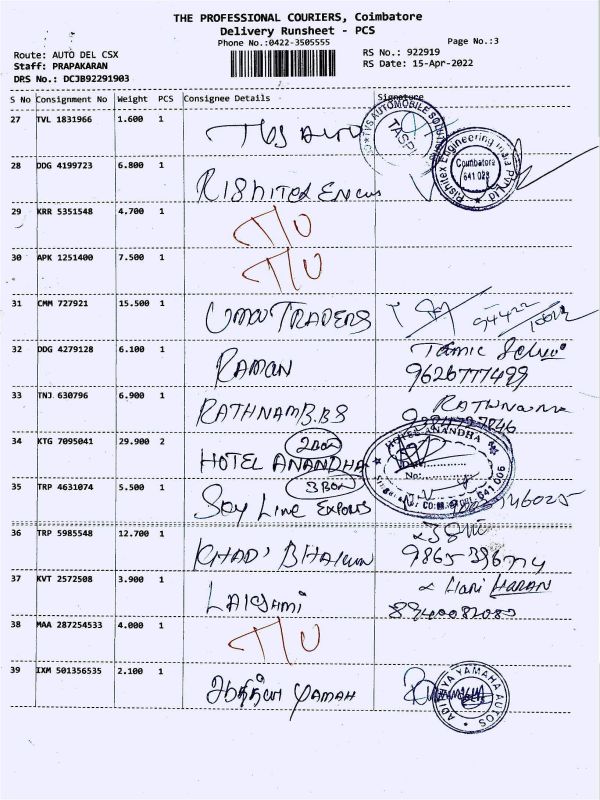 THE PROFESSIONAL COURIERS, Coimbatore
Delivery Runsheet - PCS
Phone No.:0422-3505555
Page No.:3
Route: AUTO DEL CSX
Staff: PRAPAKARAN
DRS No.: DCJB92291903
RS No.: 922919
RS Date: 15-Apr-2022
S No Consignment No Weight PCS Consignee Details Signature
27 TVL 1831966 1.600 1 TVS AUTO
TVS AUTOMOBILE
28 DDG 4199723 6.800 1 RISHITEX
Rishitex Engineering India Pvt Ltd
Coimbatore
641 028
29 KRR 5351548 4.700 1 T/U
30 APK 1251400 7.500 1 T/U
31 CMM 727921 15.500 1 TRADERS
32 DDG 4279128 6.100 1 RAMAN
9626777499
33 TNJ 630796 6.900 1 RATHNAM B.BS
34 KTG 7095041 29.900 2 HOTEL ANANDHA 2 BOX
HOTEL ANANDHA
No:
35 TRP 4631074 5.500 1 SKY Line EXPORTS 3 BOX
36 TRP 5985548 12.700 1 KHADI
37 KVT 2572508 3.900 1
Hari HARAN
38 MAA 287254533 4.000 1 T/U
39 IXM 501356535 2.100 1
ADITHYA YAMAHA AUTOS